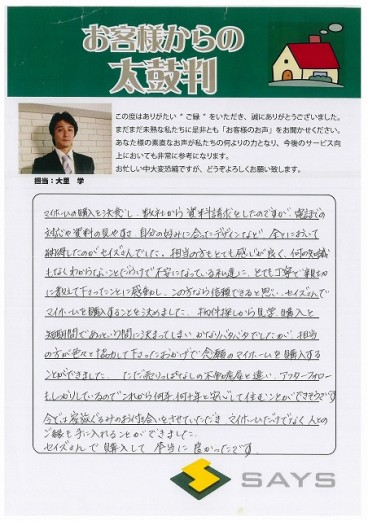 お客様からの
太鼓判
この度はありがたい“ご縁”をいただき、誠にありがとうございました。
まだまだ未熟な私たちに是非とも「お客様のお声」をお聞かせください。
あなた様の素直なお声が私たちの何よりの力となり、今後のサービス向
上においても非常に参考になります。
お忙しい中大変恐縮ですが、どうぞよろしくお願い致します。
担当：大重 学
マイホームの購入を決意し、数社から資料請求をしたのですが、電話での
対応や資料の見やすさ、自分の好みに合ったデザインなど、全てにおいて
納得したのがセイズさんでした。担当の方もとても感じが良く、何の知識
もなくわからないことだらけで不安になっている私達に、とても丁寧で親切
に教えて下さったことに感動し、この方なら信頼できると思い、セイズさんで
マイホームを購入することを決めました。物件探しから見学、購入と
短期間であっという間に決まってしまいかなりバタバタでしたが、担当
の方が色々と協力して下さったおかげで念願のマイホームを購入する
ことができました。ただ売りっぱなしの不動産屋と違い、アフターフォロー
もしっかりしているのでこれから何年、何十年と安心して住むことができそうです
今では家族ぐるみのお付き合いをさせていただき、マイホームだけでなく人との
ご縁も手に入れることができました。
セイズさんで購入して本当に良かったです。
SAYS